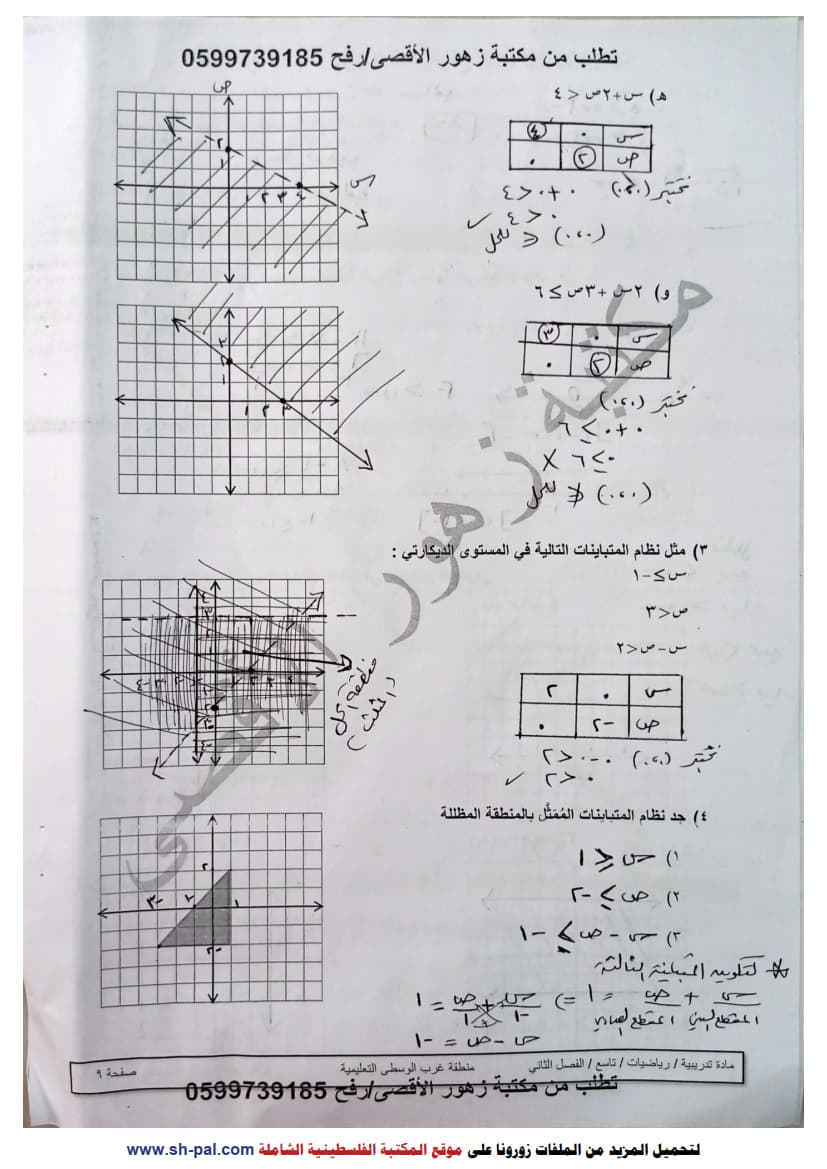 تطلب من مكتبة زهور الأقصى/رفح 0599739185
هـ) س + ٢ص > ٤
س ٠ ٤
ص ٢ ٠
نختبر (٠،٠) ٠ + ٠ > ٤
٠ > ٤ ✓
(٠،٠) ∈ للحل
ص
س
١ ٢ ٣ ٤
٢
١
و) ٢س + ٣ص ≥ ٦
س ٠ ٣
ص ٢ ٠
نختبر (٠،٠)
٠ + ٠ ≥ ٦
٠ ≥ ٦ X
(٠،٠) ∉ للحل
٣
٢
١
١ ٢ ٣
٣) مثل نظام المتباينات التالية في المستوى الديكارتي :
س ≥ -١
ص > ٣
س - ص > ٢
س ٠ ٢
ص -٢ ٠
نختبر (٠،٠) ٠ - ٠ > ٢
٠ > ٢ ✓
منطقة الحل
(المثلث)
٤) جد نظام المتباينات المُمَثَّل بالمنطقة المظللة
١) س ≤ ١
٢) ص ≥ -٢
٣) س - ص ≥ -١
٢
-٣
١
-٢
* لتكوين المتباينة الثالثة
س/المقطع السيني + ص/المقطع الصادي = ١ ⇐ س/-١ + ص/١ = ١
س - ص = -١
مادة تدريبية / رياضيات / تاسع / الفصل الثاني منطقة غرب الوسطى التعليمية صفحة ٩
تطلب من مكتبة زهور الأقصى/رفح 0599739185
مكتبة زهور الأقصى
لتحميل المزيد من الملفات زورونا على موقع المكتبة الفلسطينية الشاملة www.sh-pal.com